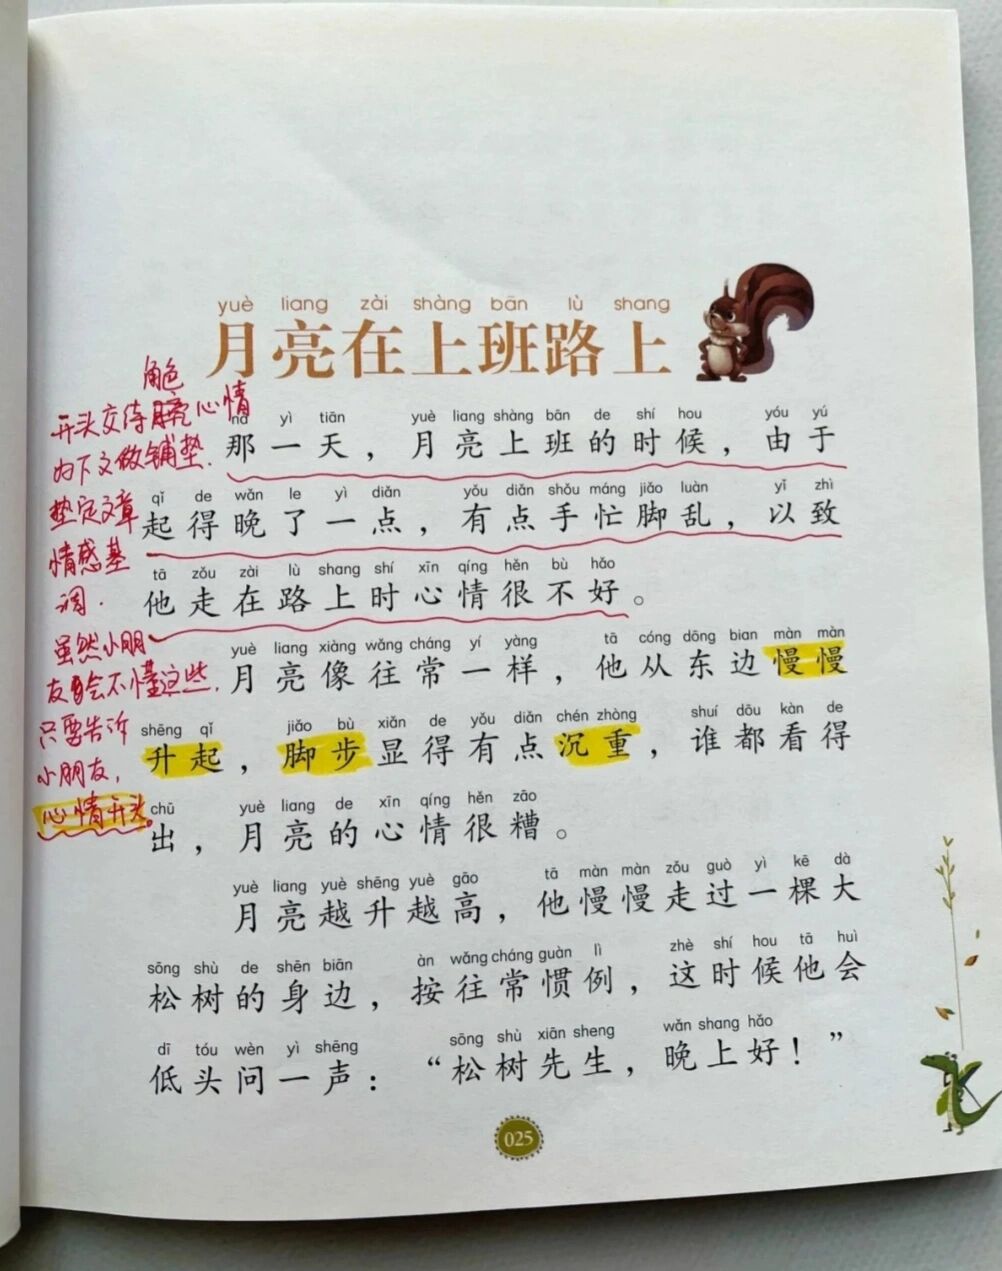 yuè liang zài shàng bān lù shang
月亮在上班路上
角色
开头交待心情
为下文做铺垫.
垫定文章
情感基
调.
虽然小朋
友会不懂这些.
只要告诉
小朋友,
心情开头.
nà yì tiān yuè liang shàng bān de shí hou yóu yú
那一天，月亮上班的时候，由于
qǐ de wǎn le yì diǎn yǒu diǎn shǒu máng jiǎo luàn yǐ zhì
起得晚了一点，有点手忙脚乱，以致
tā zǒu zài lù shang shí xīn qíng hěn bù hǎo
他走在路上时心情很不好。
yuè liang xiàng wǎng cháng yí yàng tā cóng dōng bian màn màn
月亮像往常一样，他从东边慢慢
shēng qǐ jiǎo bù xiǎn de yǒu diǎn chén zhòng shuí dōu kàn de
升起，脚步显得有点沉重，谁都看得
chū yuè liang de xīn qíng hěn zāo
出，月亮的心情很糟。
yuè liang yuè shēng yuè gāo tā màn màn zǒu guò yì kē dà
月亮越升越高，他慢慢走过一棵大
sōng shù de shēn biān àn wǎng cháng guàn lì zhè shí hou tā huì
松树的身边，按往常惯例，这时候他会
dī tóu wèn yì shēng sōng shù xiān sheng wǎn shang hǎo
低头问一声：“松树先生，晚上好！”
025